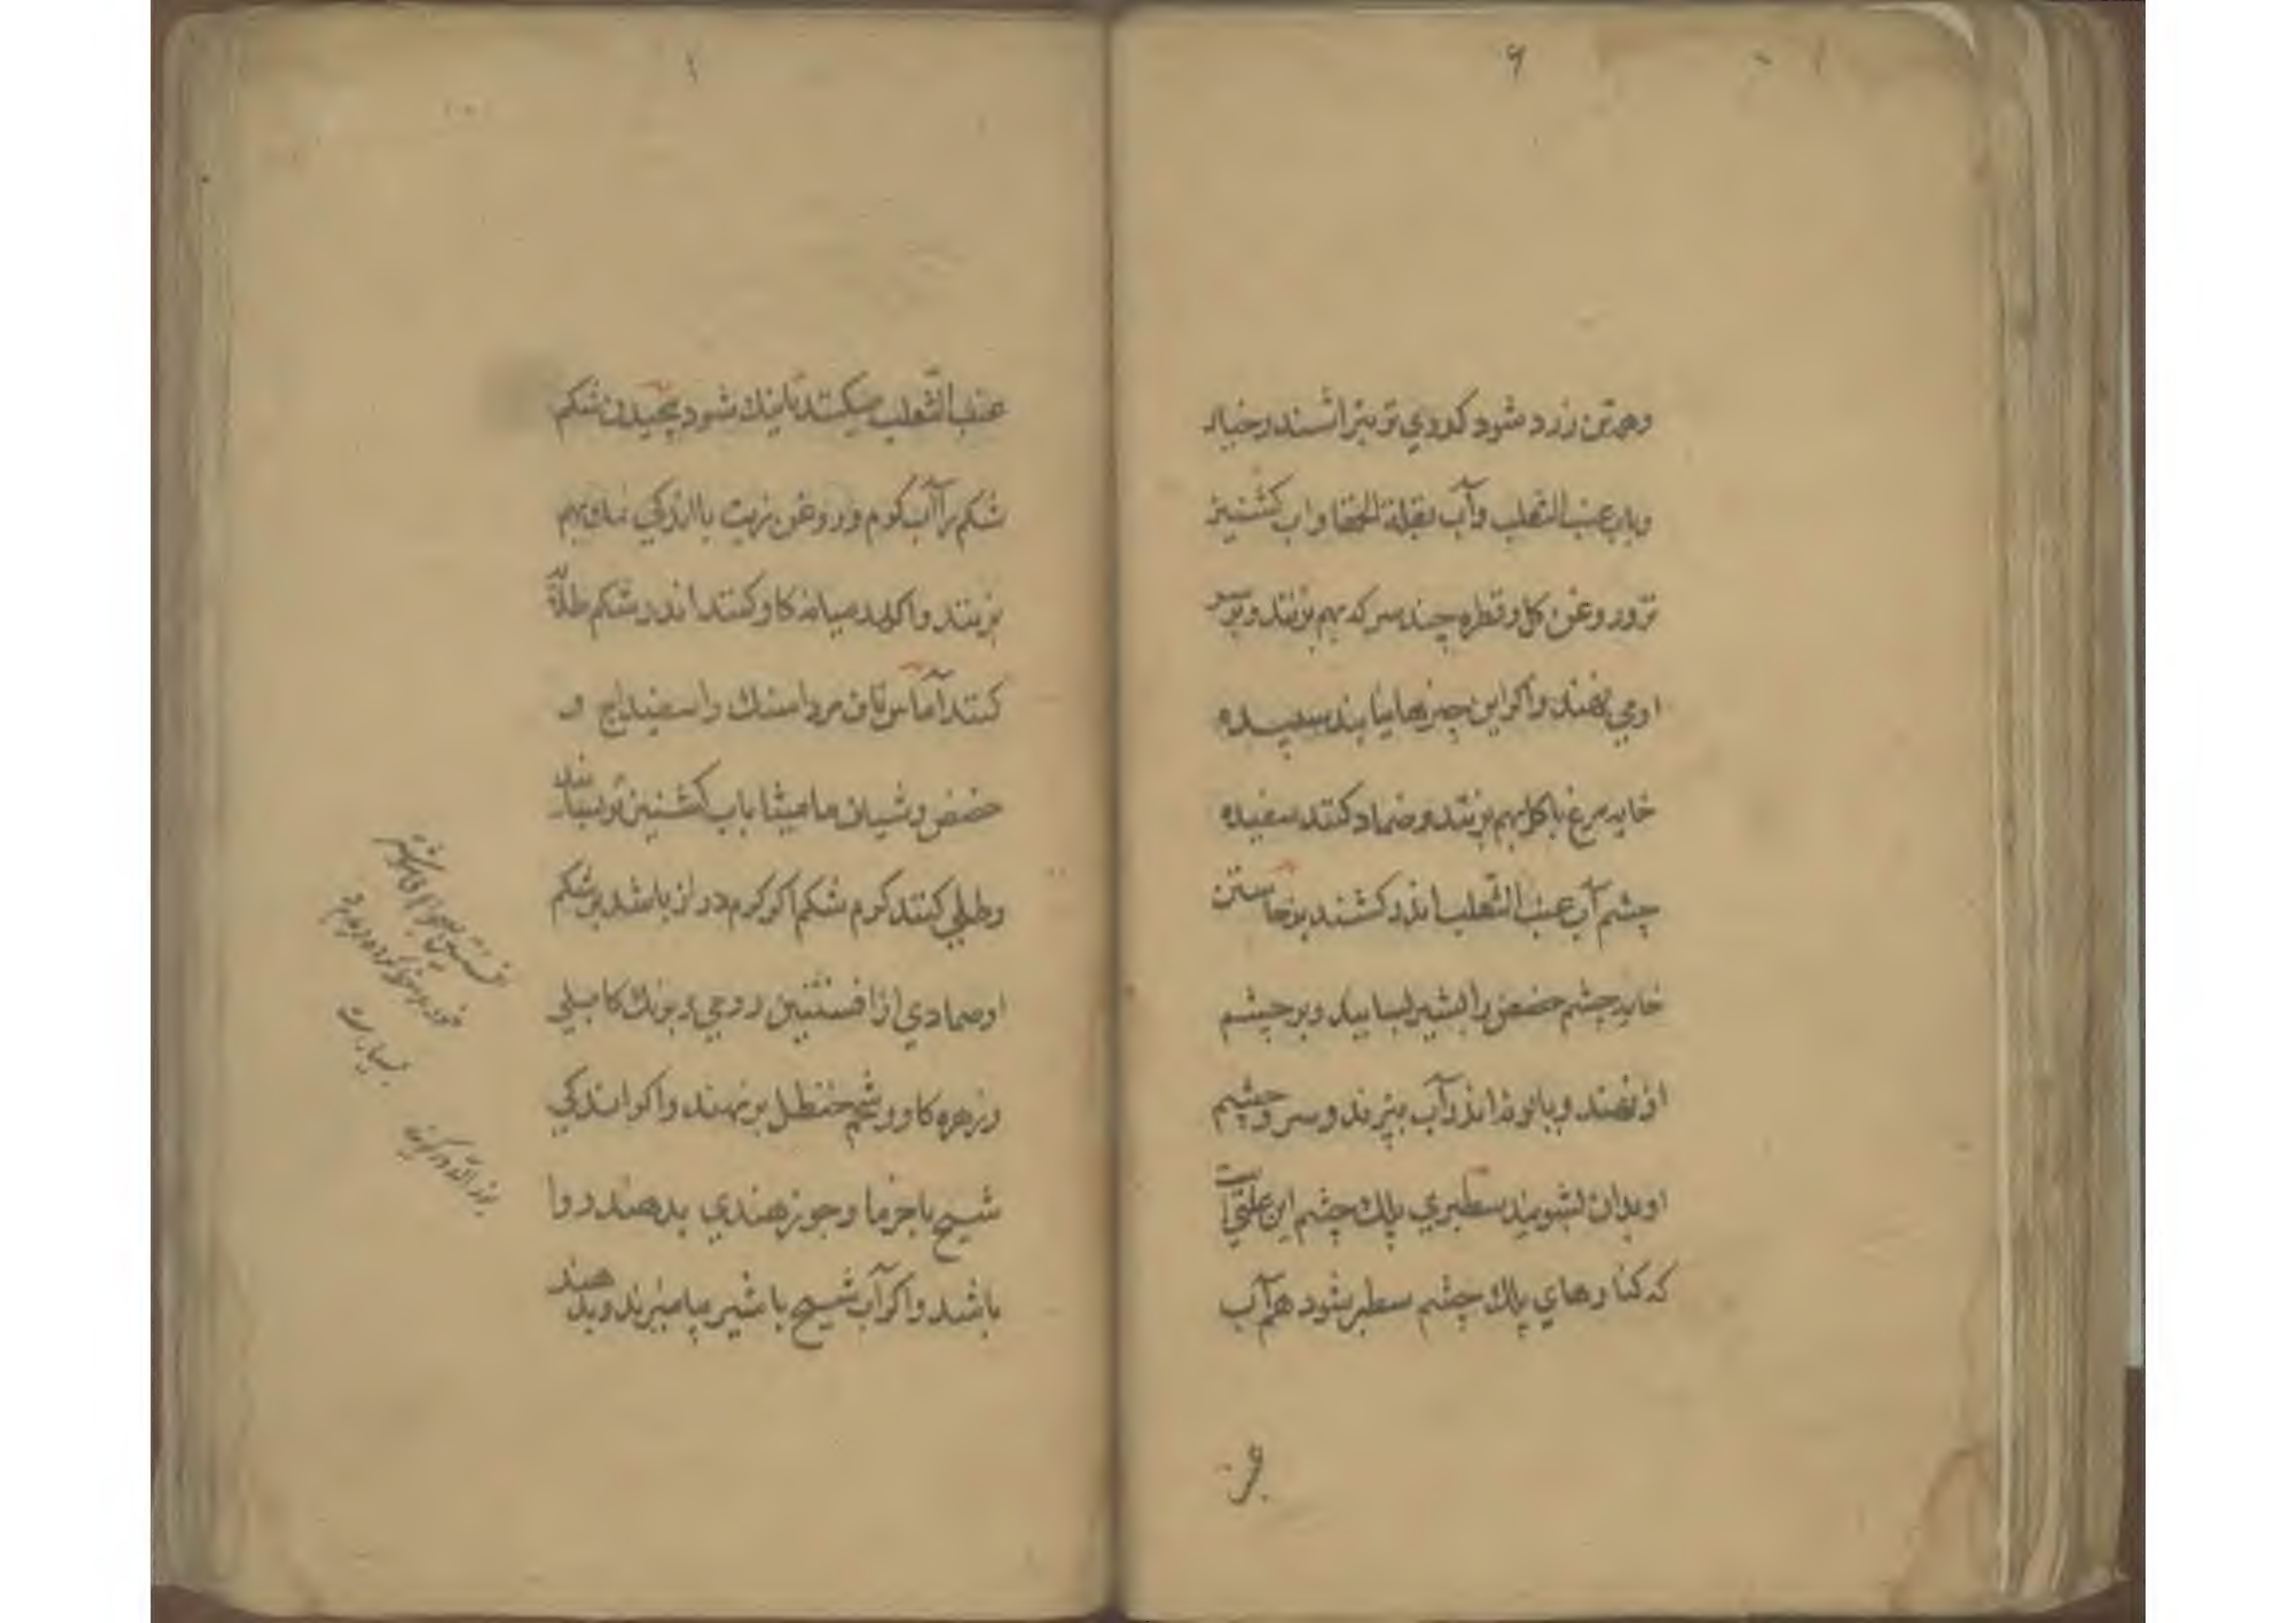 ۶
وهمه تن زرد شود کدوی تر بتراشند و خیار
و باب عنب الثعلب و آب بقلة الحمقا و آب کشنیز
تر و روغن کل و قطره چند سرکه بهم بزنند و بر سر
اومی نهند و اکر این چیزها نیابند سپیده
خایه مرغ با کل بهم بزنند و ضماد کنند سفیده
چشم آب عنب الثعلب اندر کشند برخاستن
خایه چشم حضض را بشیر بسایند و بر چشم
او نهند و بابونه اندر آب بپزند و سر و چشم
او بدان بشویند سطبری پلك چشم این علتی است
که کنارهای پلك چشم سطبر شود هم آب
عنب
۱
عنب الثعلب میکنند تا نیك شود پیچیدن شکم
شکم را آب کرم و روغن زیت با اندکی بهم
بزنند و اکلید میانه کاو کنند اندر شکم طلا
کنند آماس ناف مرداسنك و اسفیداج و
حضض و شیاف مامیثا باب کشنیز تر بسایند
و طلی کنند کرم شکم اکر کرم دراز باشد بر شکم
او ضمادی از افسنتین رومی و برنك کابلی
و زهره کاو و شحم حنظل برنهند و اکر اندکی
شیح با خرما و جوز هندی بدهند روا
باشد و اکر آب شیح با شیر بیامیزند و بدهند